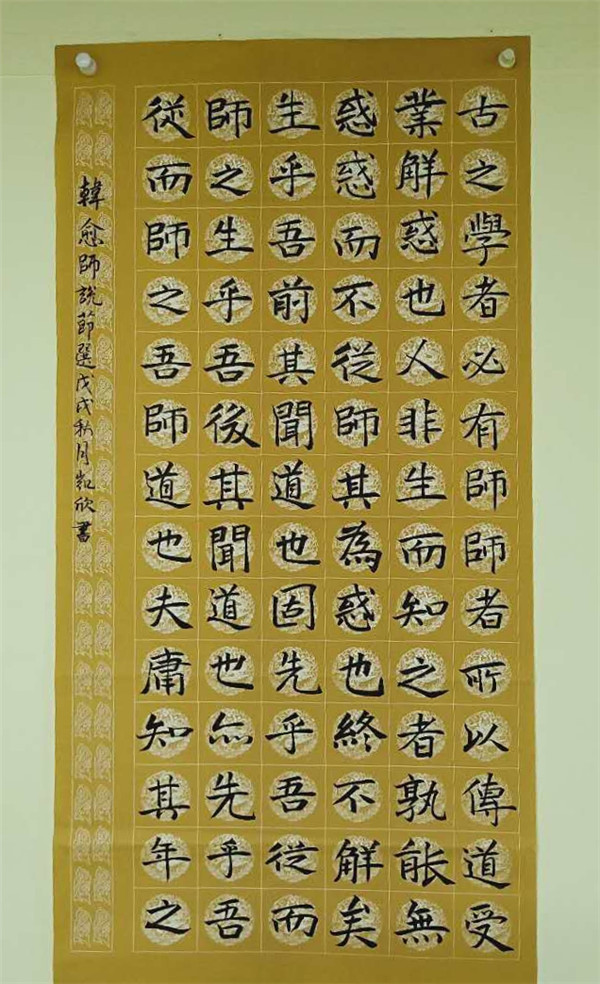 古之學者必有師師者所以傳道受
業解惑也人非生而知之者孰能無
惑惑而不從師其為惑也終不解矣
生乎吾前其聞道也固先乎吾從而
師之生乎吾後其聞道也亦先乎吾
從而師之吾師道也夫庸知其年之
韓愈師說節選戊戌秋月凱欣書